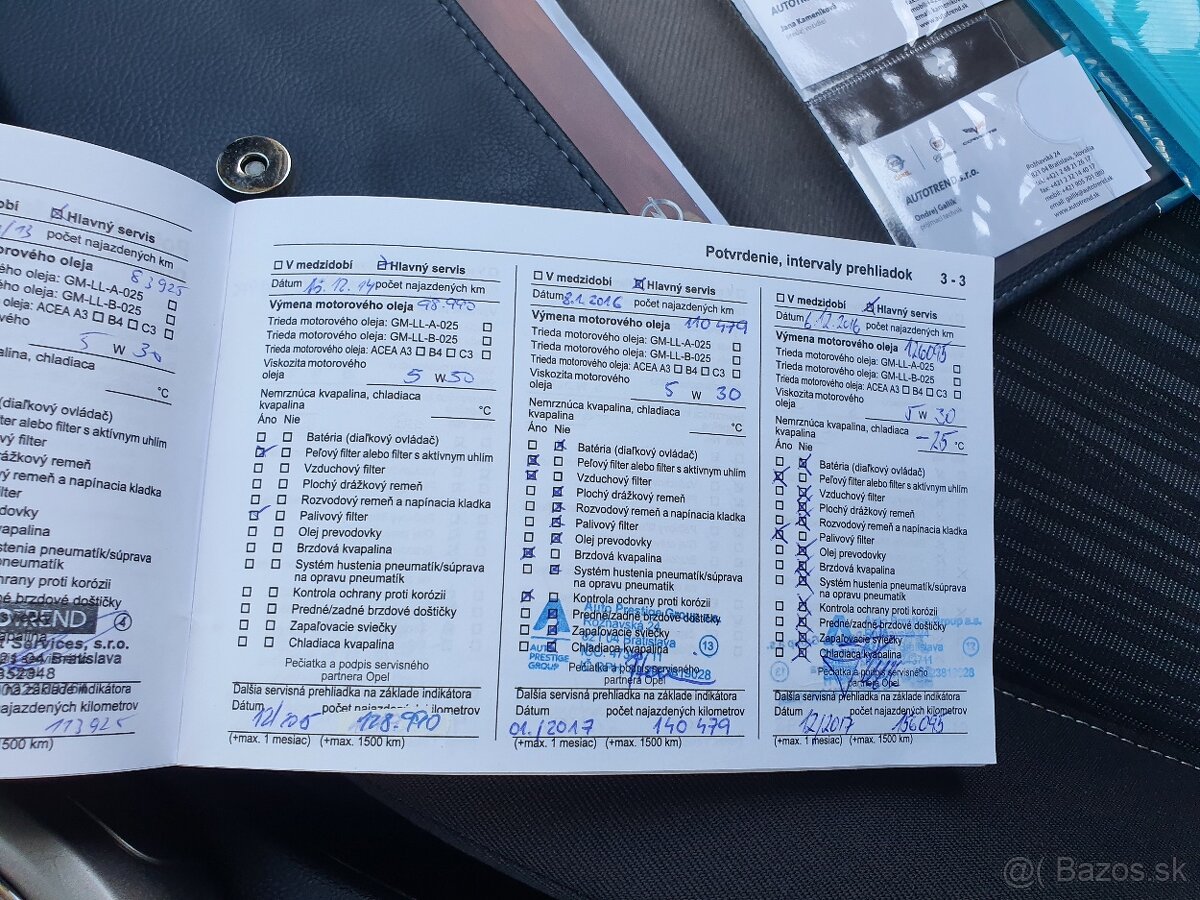 AUTOTREND
Jana Kameníková
www.autotrend.sk
AUTOTREND s.r.o.
Ondrej Gallik
prijímací technik
Rožňavská 24
821 04 Bratislava, Slovakia
www.autotrend.sk
dobí ☒ Hlavný servis
/13 počet najazdených km
orového oleja 83925
ého oleja: GM-LL-A-025
ého oleja: GM-LL-B-025
oleja: ACEA A3 ☐ B4 ☐ C3
vého
5 W 30
alina, chladiaca
°C
(diaľkový ovládač)
lter alebo filter s aktívnym uhlím
vý filter
rážkový remeň
vý remeň a napínacia kladka
ilter
vodovky
vapalina
ustenia pneumatík/súprava
pneumatík
hrany proti korózii
né brzdové doštičky
OTREND
4
t Services, s.r.o.
821 04 Bratislava
na základe indikátora
najazdených kilometrov
113925
1500 km)
Potvrdenie, intervaly prehliadok 3 - 3
☐ V medzidobí ☒ Hlavný servis
Dátum 16. 12. 14 počet najazdených km
Výmena motorového oleja 98.990
Trieda motorového oleja: GM-LL-A-025 ☐
Trieda motorového oleja: GM-LL-B-025 ☐
Trieda motorového oleja: ACEA A3 ☐ B4 ☐ C3 ☐
Viskozita motorového
oleja 5 W 30
Nemrznúca kvapalina, chladiaca
kvapalina °C
Áno Nie
Batéria (diaľkový ovládač)
Peľový filter alebo filter s aktívnym uhlím
Vzduchový filter
Plochý drážkový remeň
Rozvodový remeň a napínacia kladka
Palivový filter
Olej prevodovky
Brzdová kvapalina
Systém hustenia pneumatík/súprava
na opravu pneumatík
Kontrola ochrany proti korózii
Predné/zadné brzdové doštičky
Zapaľovacie sviečky
Chladiaca kvapalina
Pečiatka a podpis servisného
partnera Opel
Ďalšia servisná prehliadka na základe indikátora
Dátum počet najazdených kilometrov
12/205 128.990
(+max. 1 mesiac) (+max. 1500 km)
☐ V medzidobí ☒ Hlavný servis
Dátum 8.1.2016 počet najazdených km
Výmena motorového oleja 110 479
Trieda motorového oleja: GM-LL-A-025 ☐
Trieda motorového oleja: GM-LL-B-025 ☐
Trieda motorového oleja: ACEA A3 ☐ B4 ☐ C3 ☐
Viskozita motorového
oleja 5 W 30
Nemrznúca kvapalina, chladiaca
kvapalina °C
Áno Nie
Batéria (diaľkový ovládač)
Peľový filter alebo filter s aktívnym uhlím
Vzduchový filter
Plochý drážkový remeň
Rozvodový remeň a napínacia kladka
Palivový filter
Olej prevodovky
Brzdová kvapalina
Systém hustenia pneumatík/súprava
na opravu pneumatík
Kontrola ochrany proti korózii
Predné/zadné brzdové doštičky
Zapaľovacie sviečky
Chladiaca kvapalina
Pečiatka a podpis servisného
partnera Opel
Auto Prestige Group
Rožňavská 24
821 04 Bratislava
13
AUTO
PRESTIGE
GROUP
Ďalšia servisná prehliadka na základe indikátora
Dátum počet najazdených kilometrov
01./2017 140 479
(+max. 1 mesiac) (+max. 1500 km)
☐ V medzidobí ☒ Hlavný servis
Dátum 6.12.2016 počet najazdených km
Výmena motorového oleja 126095
Trieda motorového oleja: GM-LL-A-025 ☐
Trieda motorového oleja: GM-LL-B-025 ☐
Trieda motorového oleja: ACEA A3 ☐ B4 ☐ C3 ☐
Viskozita motorového
oleja 5 W 30
Nemrznúca kvapalina, chladiaca
kvapalina -25 °C
Áno Nie
Batéria (diaľkový ovládač)
Peľový filter alebo filter s aktívnym uhlím
Vzduchový filter
Plochý drážkový remeň
Rozvodový remeň a napínacia kladka
Palivový filter
Olej prevodovky
Brzdová kvapalina
Systém hustenia pneumatík/súprava
na opravu pneumatík
Kontrola ochrany proti korózii
Predné/zadné brzdové doštičky
Zapaľovacie sviečky
Chladiaca kvapalina
Pečiatka a podpis servisného
partnera Opel
Ďalšia servisná prehliadka na základe indikátora
Dátum počet najazdených kilometrov
12/2017 156095
(+max. 1 mesiac) (+max. 1500 km)
@( Bazos.sk